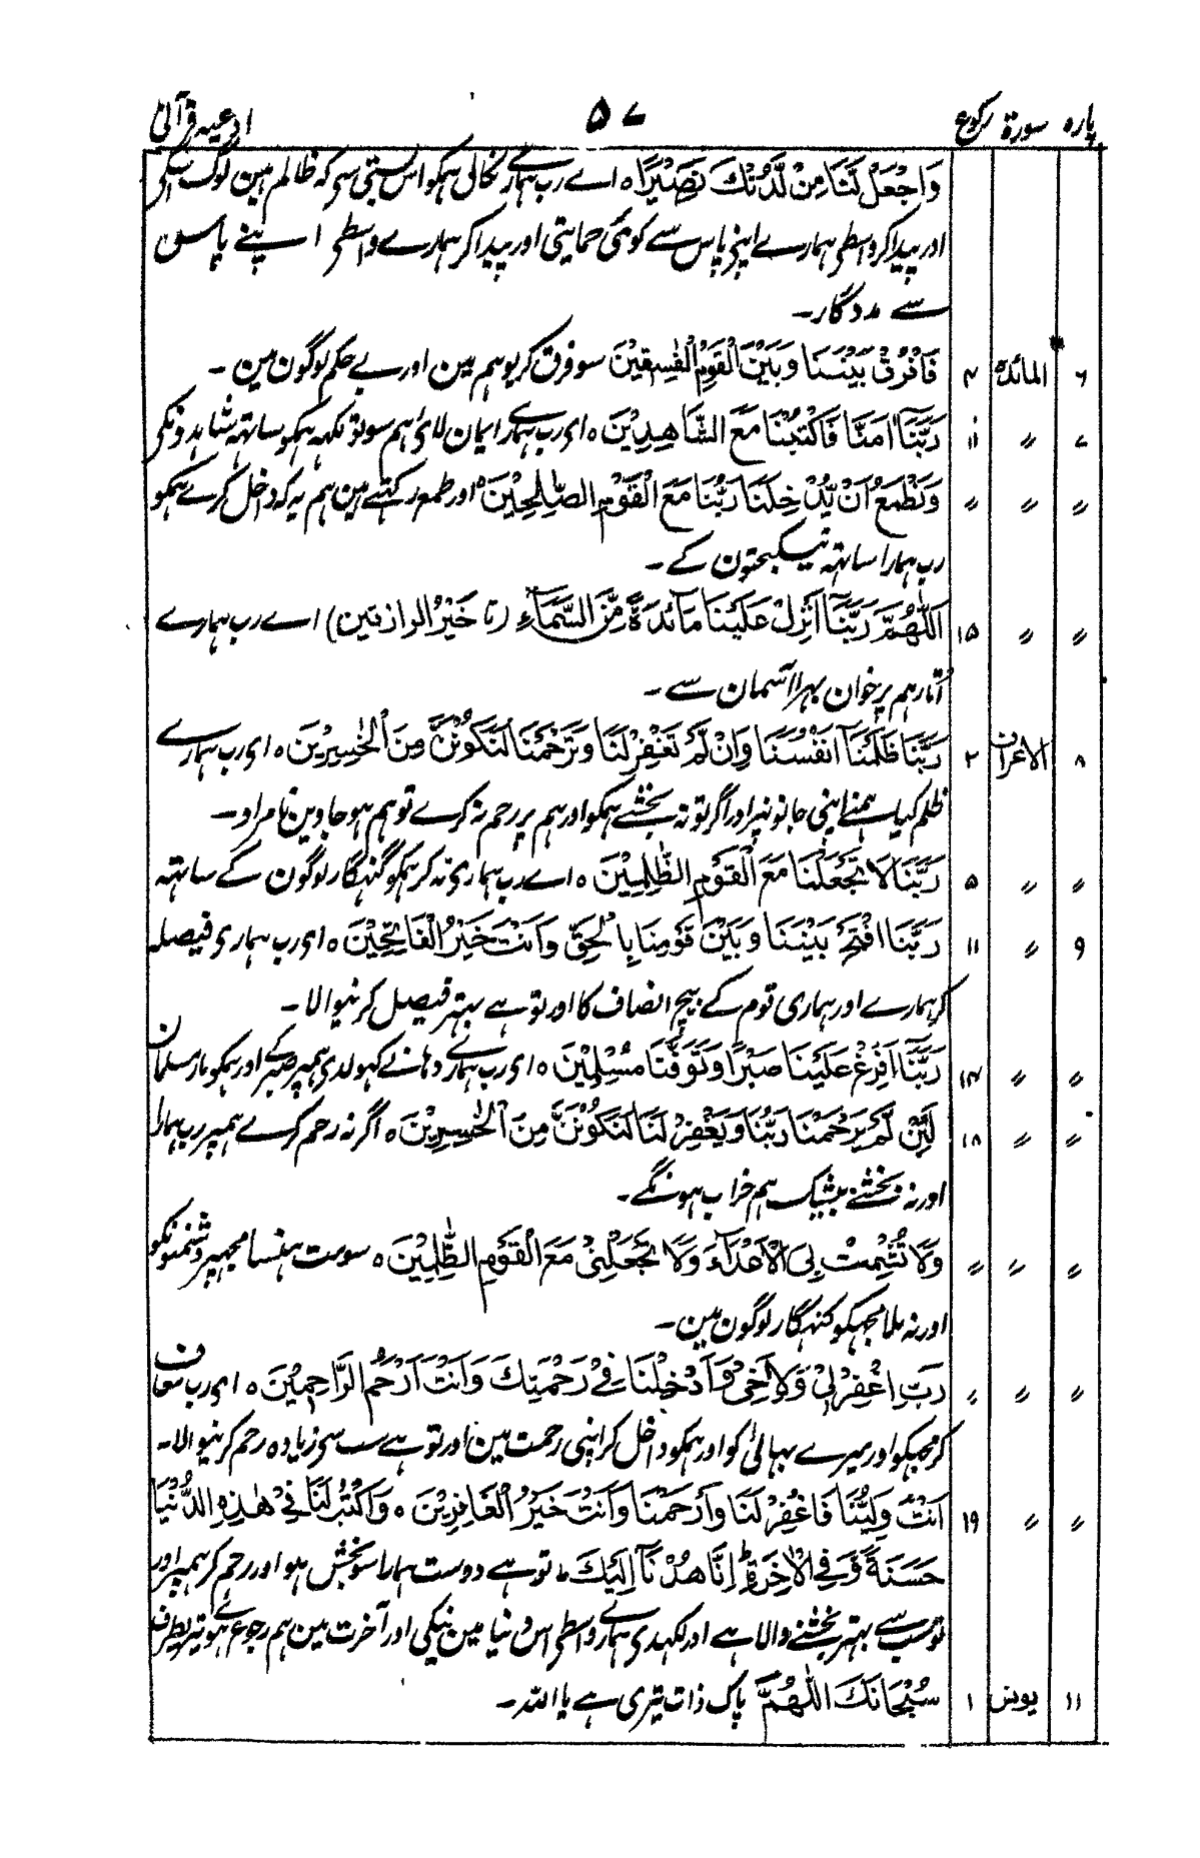 پارہ سورۃ رکوع ۵۷ ادعیہ قرآنی
وَاجْعَلْ لَّنَا مِنْ لَّدُنْكَ نَصِيْرًا ہ اے رب ہمارے نکال ہمکو اس بستی سی کہ ظالم ہین لوگ اسکی
اور پیدا کر واسطی ہمارے اپنے پاس سے کوئی حمایتی اور پیدا کر ہمارے واسطی اپنے پاس
سے مددگار۔
۶ المائدہ ۴ فَافْرُقْ بَيْنَنَا وَبَيْنَ الْقَوْمِ الْفٰسِقِيْنَ سو فرق کر یو ہم مین اور بے حکم لوگون مین ۔
۷ 〃 ۱۱ رَبَّنَآ اٰمَنَّا فَاكْتُبْنَا مَعَ الشَّاهِدِيْنَ ہ ای رب ہمارے ایمان لائ ہم سو تو لکہہ ہمکو ساتہہ شاہدونکی
〃 〃 〃 وَنَطْمَعُ اَنْ يُّدْخِلَنَا رَبُّنَا مَعَ الْقَوْمِ الصّٰلِحِيْنَ ہ اور طمع رکہتے ہین ہم یہ کہ داخل کرے ہمکو
رب ہمارا ساتہہ نیکبختون کے ۔
〃 〃 ۱۵ اَللّٰهُمَّ رَبَّنَآ اَنْزِلْ عَلَيْنَا مَآئِدَةً مِّنَ السَّمَآءِ (تا خَيْرُ الرازقين) اے رب ہمارے
اُتار ہم پر خوان بہرا آسمان سے ۔
۸ الاعراف ۲ رَبَّنَا ظَلَمْنَآ اَنْفُسَنَا وَاِنْ لَّمْ تَغْفِرْ لَنَا وَتَرْحَمْنَا لَنَكُوْنَنَّ مِنَ الْخٰسِرِيْنَ ہ ای رب ہمارے
ظلم کیا ہمنے اپنی جانونپر اور اگر تو نہ بخشے ہمکو اور ہم پر رحم نہ کرے تو ہم ہو جاوین نامراد ۔
〃 〃 ۵ رَبَّنَا لَا تَجْعَلْنَا مَعَ الْقَوْمِ الظّٰلِمِيْنَ ہ اے رب ہماری نہ کر ہمکو گنہگار لوگون کے ساتہہ
۹ 〃 ۱۱ رَبَّنَا افْتَحْ بَيْنَنَا وَبَيْنَ قَوْمِنَا بِالْحَقِّ وَاَنْتَ خَيْرُ الْفَاتِحِيْنَ ہ ای رب ہماری فیصلہ
کر ہمارے اور ہماری قوم کے بیچ انصاف کا اور تو ہے بہتر فیصل کرنیوالا ۔
〃 〃 ۱۴ رَبَّنَآ اَفْرِغْ عَلَيْنَا صَبْرًا وَّتَوَفَّنَا مُسْلِمِيْنَ ہ ای رب ہمارے دہانے کہولدی ہمپر صبر کے اور ہمکو مار مسلمان
〃 〃 ۱۸ لَئِنْ لَّمْ يَرْحَمْنَا رَبُّنَا وَيَغْفِرْ لَنَا لَنَكُوْنَنَّ مِنَ الْخٰسِرِيْنَ ہ اگر نہ رحم کرے ہمپر رب ہمارا
اور نہ بخشے بیشک ہم خراب ہونگے ۔
〃 〃 〃 وَلَا تُشْمِتْ بِيَ الْاَعْدَآءَ وَلَا تَجْعَلْنِيْ مَعَ الْقَوْمِ الظّٰلِمِيْنَ ہ سو مت ہنسا مجہپر دشمنونکو
اور نہ ملا مجہکو گنہگار لوگون مین ۔
〃 〃 〃 رَبِّ اغْفِرْلِيْ وَلِاَخِيْ وَاَدْخِلْنَا فِيْ رَحْمَتِكَ وَاَنْتَ اَرْحَمُ الرَّاحِمِيْنَ ہ ای رب معاف
کر مجہکو اور میرے بہائی کو اور ہمکو داخل کر اپنی رحمت مین اور تو ہے سب سی زیادہ رحم کرنیوالا ۔
〃 〃 ۱۹ اَنْتَ وَلِيُّنَا فَاغْفِرْ لَنَا وَارْحَمْنَا وَاَنْتَ خَيْرُ الْغَافِرِيْنَ ہ وَاكْتُبْ لَنَا فِيْ هٰذِهِ الدُّنْيَا
حَسَنَةً وَّفِي الْاٰخِرَةِ اِنَّا هُدْنَآ اِلَيْكَ ہ تو ہے دوست ہمارا سو بخش ہمکو اور رحم کر ہمپر اور
تو سب سے بہتر بخشنے والا ہے اور لکہدی ہمارے واسطی اس دنیا مین نیکی اور آخرت مین ہم رجوع ہوئے تیری طرف
۱۱ یونس ۱ سُبْحَانَكَ اللّٰهُمَّ پاک ذات تیری ہے یا اللہ ۔